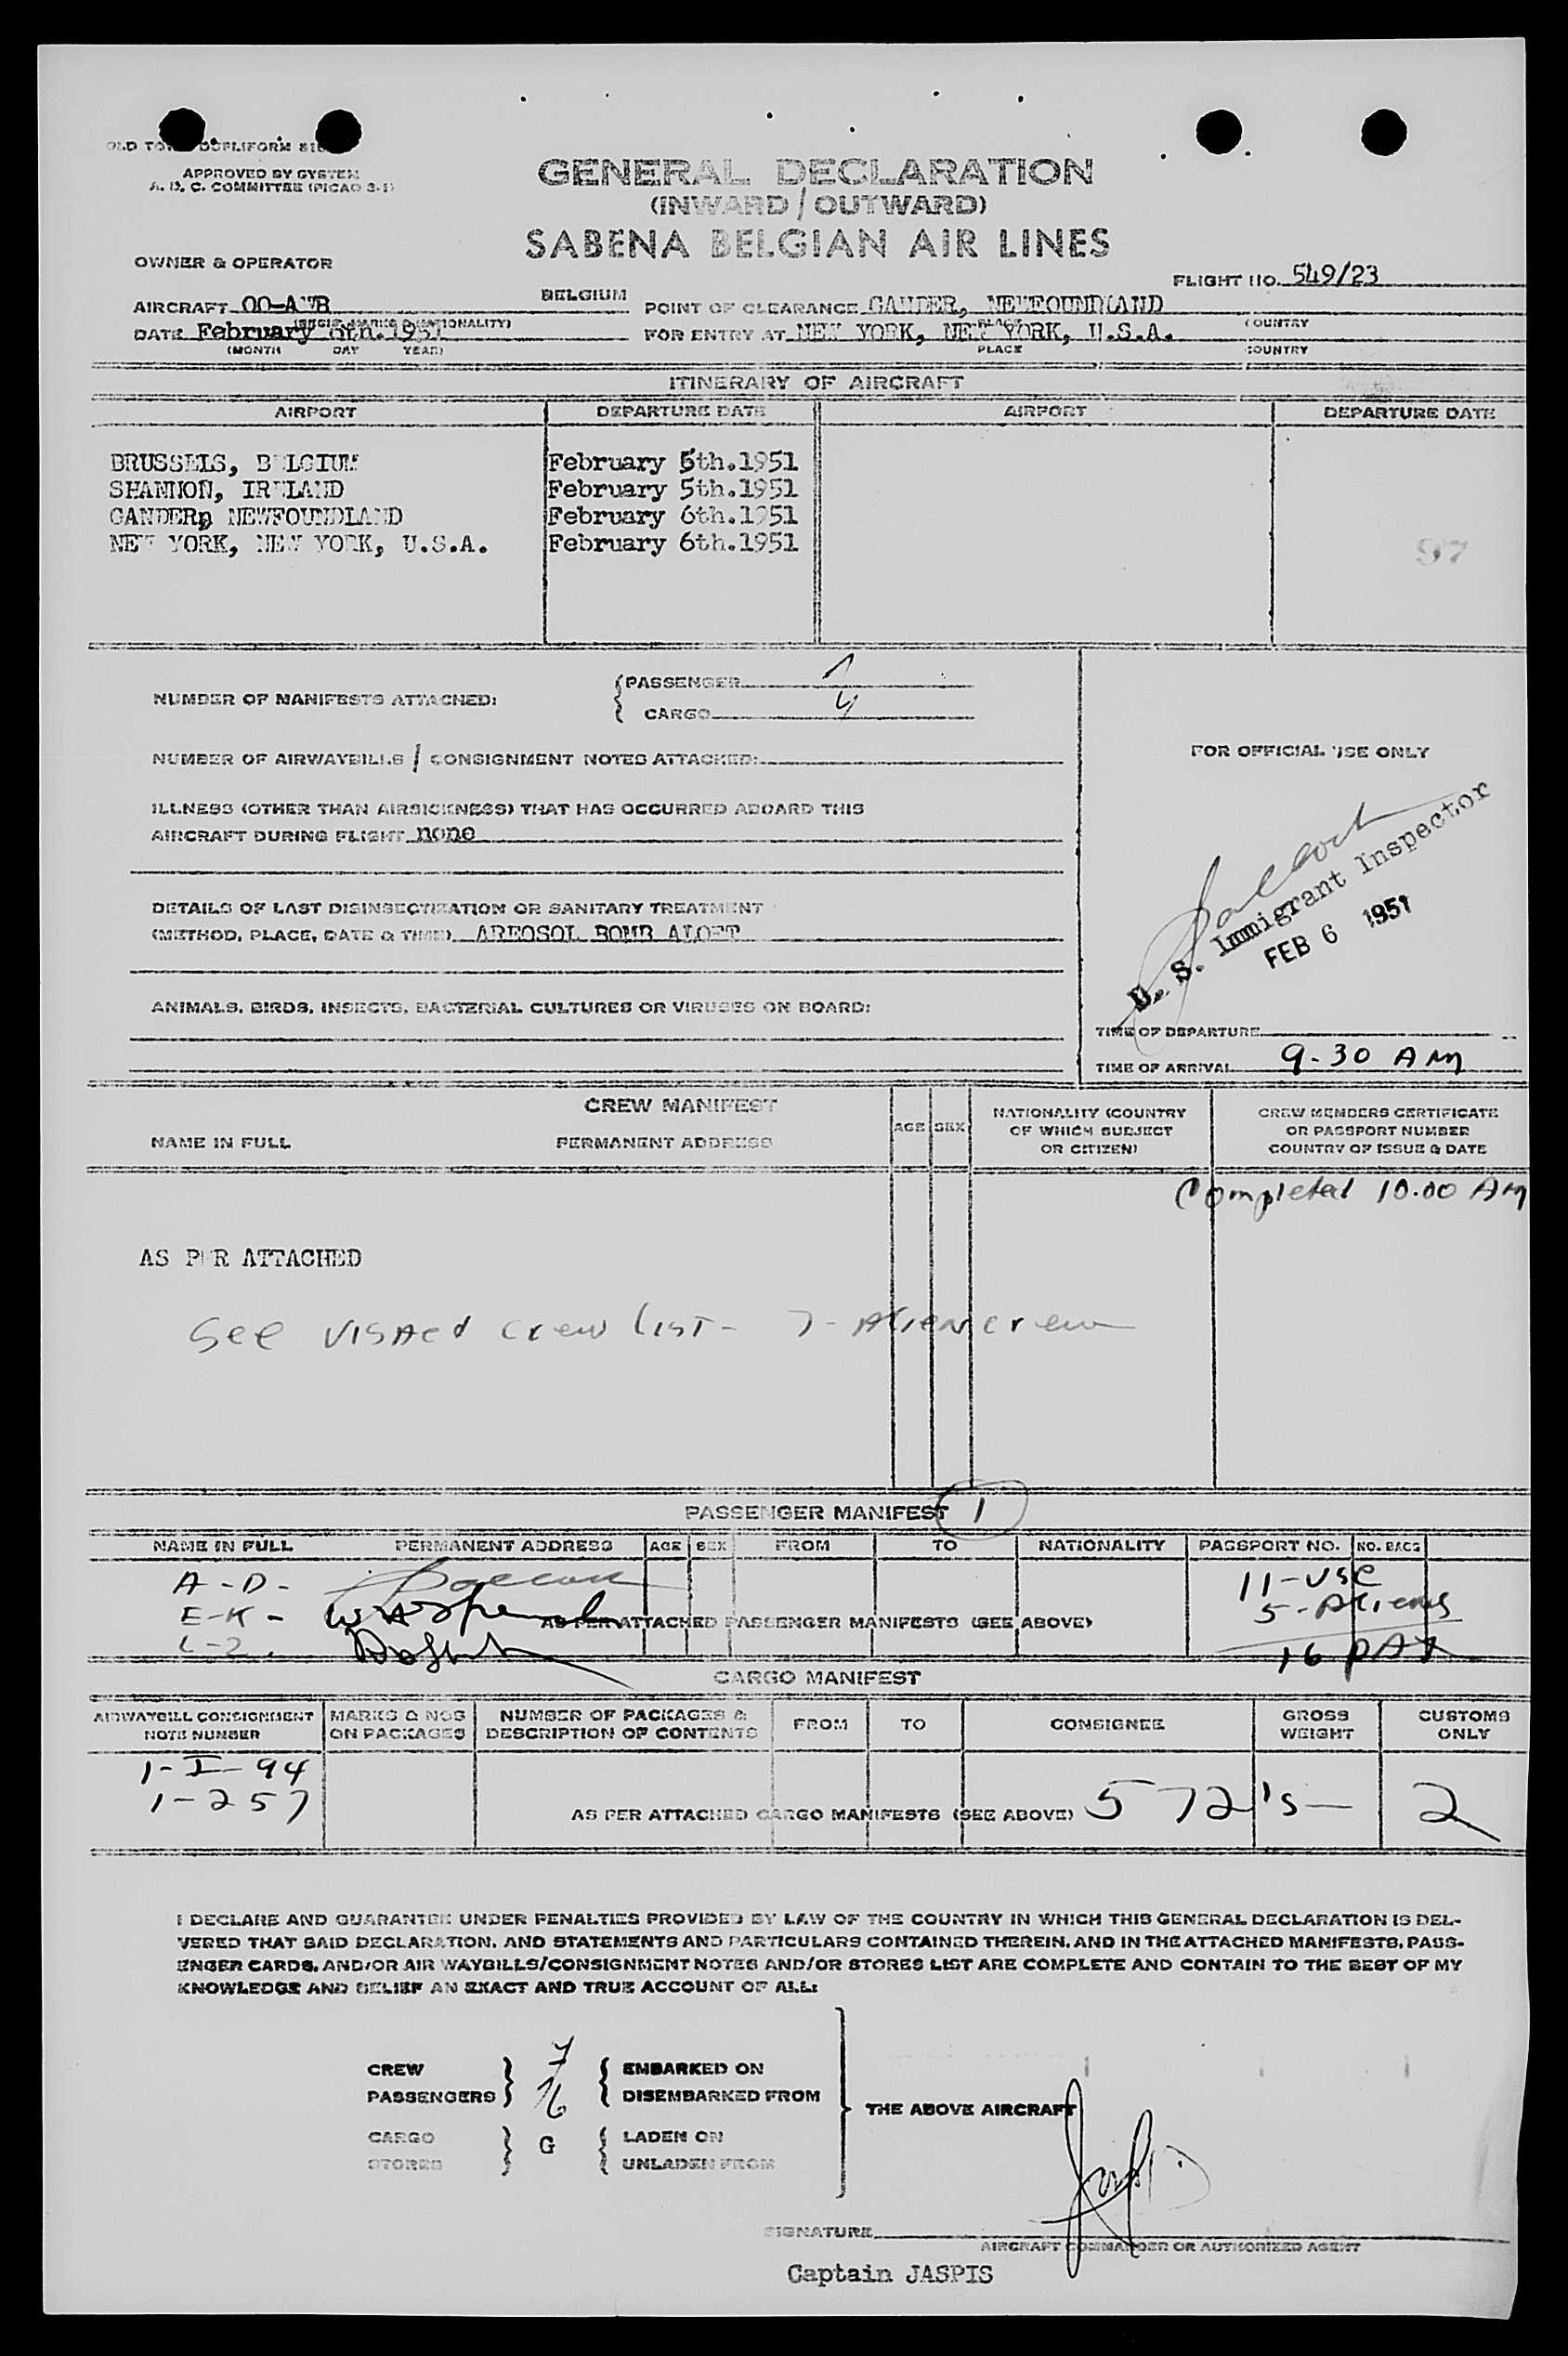 OLD TOWN DUPLIFORM
APPROVED BY SYSTEM
A. B. C. COMMITTEE (PICAO 3-1)
GENERAL DECLARATION
(INWARD / OUTWARD)
SABENA BELGIAN AIR LINES
OWNER & OPERATOR
FLIGHT NO. 549/23
AIRCRAFT OO-AWB BELGIUM POINT OF CLEARANCE GANDER, NEWFOUNDLAND
(REGIS. MARKS & NATIONALITY) PLACE COUNTRY
DATE February 6th.1951 FOR ENTRY AT NEW YORK, NEW YORK, U.S.A.
(MONTH DAY YEAR) PLACE COUNTRY
ITINERARY OF AIRCRAFT
AIRPORT DEPARTURE DATE AIRPORT DEPARTURE DATE
BRUSSELS, BELGIUM February 5th.1951
SHANNON, IRELAND February 5th.1951
GANDER, NEWFOUNDLAND February 6th.1951
NEW YORK, NEW YORK, U.S.A. February 6th.1951
97
NUMBER OF MANIFESTS ATTACHED: PASSENGER 1
CARGO 4
NUMBER OF AIRWAYBILLS / CONSIGNMENT NOTES ATTACHED:
FOR OFFICIAL USE ONLY
ILLNESS (OTHER THAN AIRSICKNESS) THAT HAS OCCURRED ABOARD THIS
AIRCRAFT DURING FLIGHT none
DETAILS OF LAST DISINSECTIZATION OR SANITARY TREATMENT
(METHOD, PLACE, DATE & TIME) AREOSOL BOMB ALOFT
U. S. Immigrant Inspector
FEB 6 1951
ANIMALS, BIRDS, INSECTS, BACTERIAL CULTURES OR VIRUSES ON BOARD:
TIME OF DEPARTURE
TIME OF ARRIVAL 9-30 AM
CREW MANIFEST
NAME IN FULL PERMANENT ADDRESS AGE SEX NATIONALITY (COUNTRY OF WHICH SUBJECT OR CITIZEN) CREW MEMBERS CERTIFICATE OR PASSPORT NUMBER COUNTRY OF ISSUE & DATE
Completed 10.00 AM
AS PER ATTACHED
See VISAed crew LIST - 7 - Alien crew
PASSENGER MANIFEST 1
NAME IN FULL PERMANENT ADDRESS AGE SEX FROM TO NATIONALITY PASSPORT NO. NO. BAGS
A - D -
11 - USC
E - K -
5 - Aliens
AS PER ATTACHED PASSENGER MANIFESTS (SEE ABOVE)
L - Z.
16 PAX
CARGO MANIFEST
AIRWAYBILL CONSIGNMENT NOTE NUMBER MARKS & NOS ON PACKAGES NUMBER OF PACKAGES & DESCRIPTION OF CONTENTS FROM TO CONSIGNEE GROSS WEIGHT CUSTOMS ONLY
1 - I - 94
1 - 257
AS PER ATTACHED CARGO MANIFESTS (SEE ABOVE) 572's - 2
I DECLARE AND GUARANTEE UNDER PENALTIES PROVIDED BY LAW OF THE COUNTRY IN WHICH THIS GENERAL DECLARATION IS DEL-
VERED THAT SAID DECLARATION, AND STATEMENTS AND PARTICULARS CONTAINED THEREIN, AND IN THE ATTACHED MANIFESTS, PASS-
ENGER CARDS, AND/OR AIR WAYBILLS/CONSIGNMENT NOTES AND/OR STORES LIST ARE COMPLETE AND CONTAIN TO THE BEST OF MY
KNOWLEDGE AND BELIEF AN EXACT AND TRUE ACCOUNT OF ALL:
CREW 7 EMBARKED ON
PASSENGERS 16 DISEMBARKED FROM
THE ABOVE AIRCRAFT
CARGO G LADEN ON
STORES UNLADEN FROM
SIGNATURE
AIRCRAFT COMMANDER OR AUTHORIZED AGENT
Captain JASPIS